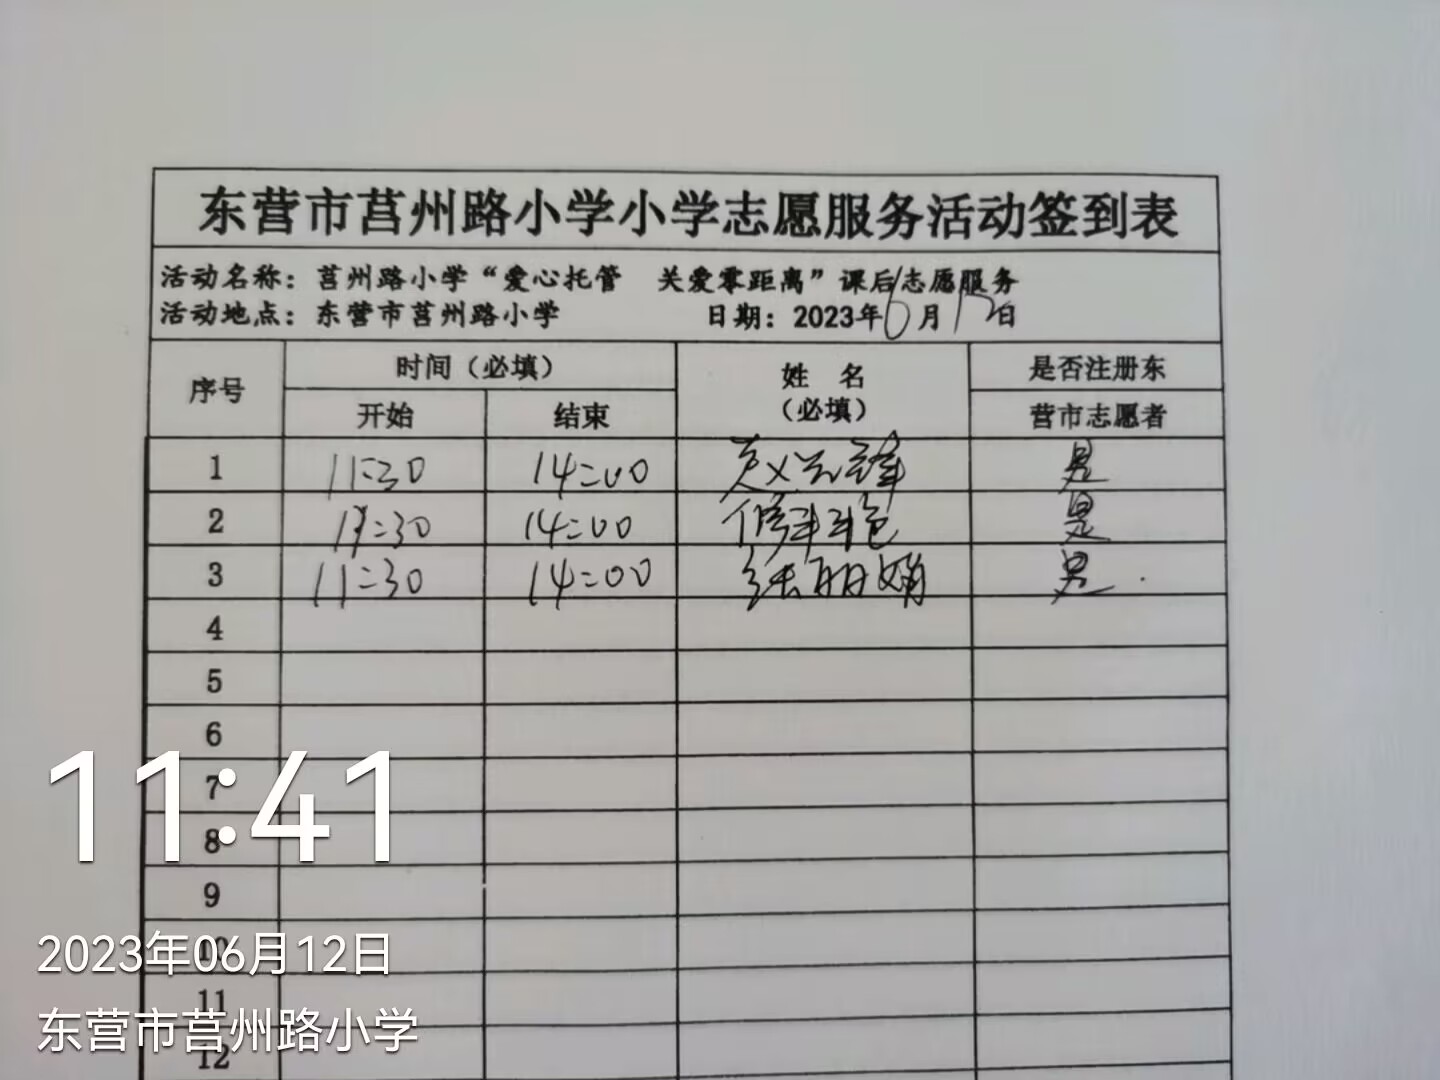 东营市莒州路小学小学志愿服务活动签到表
活动名称：莒州路小学“爱心托管 关爱零距离”课后志愿服务
活动地点：东营市莒州路小学 日期：2023年6月12日
序号 时间（必填） 姓 名 （必填） 是否注册东
开始 结束 营市志愿者
1 11:30 14:00 是
2 11:30 14:00 是
3 11:30 14:00 张丽娟 是
4
5
6
7
8
9
10
11
12
11:41
2023年06月12日
东营市莒州路小学